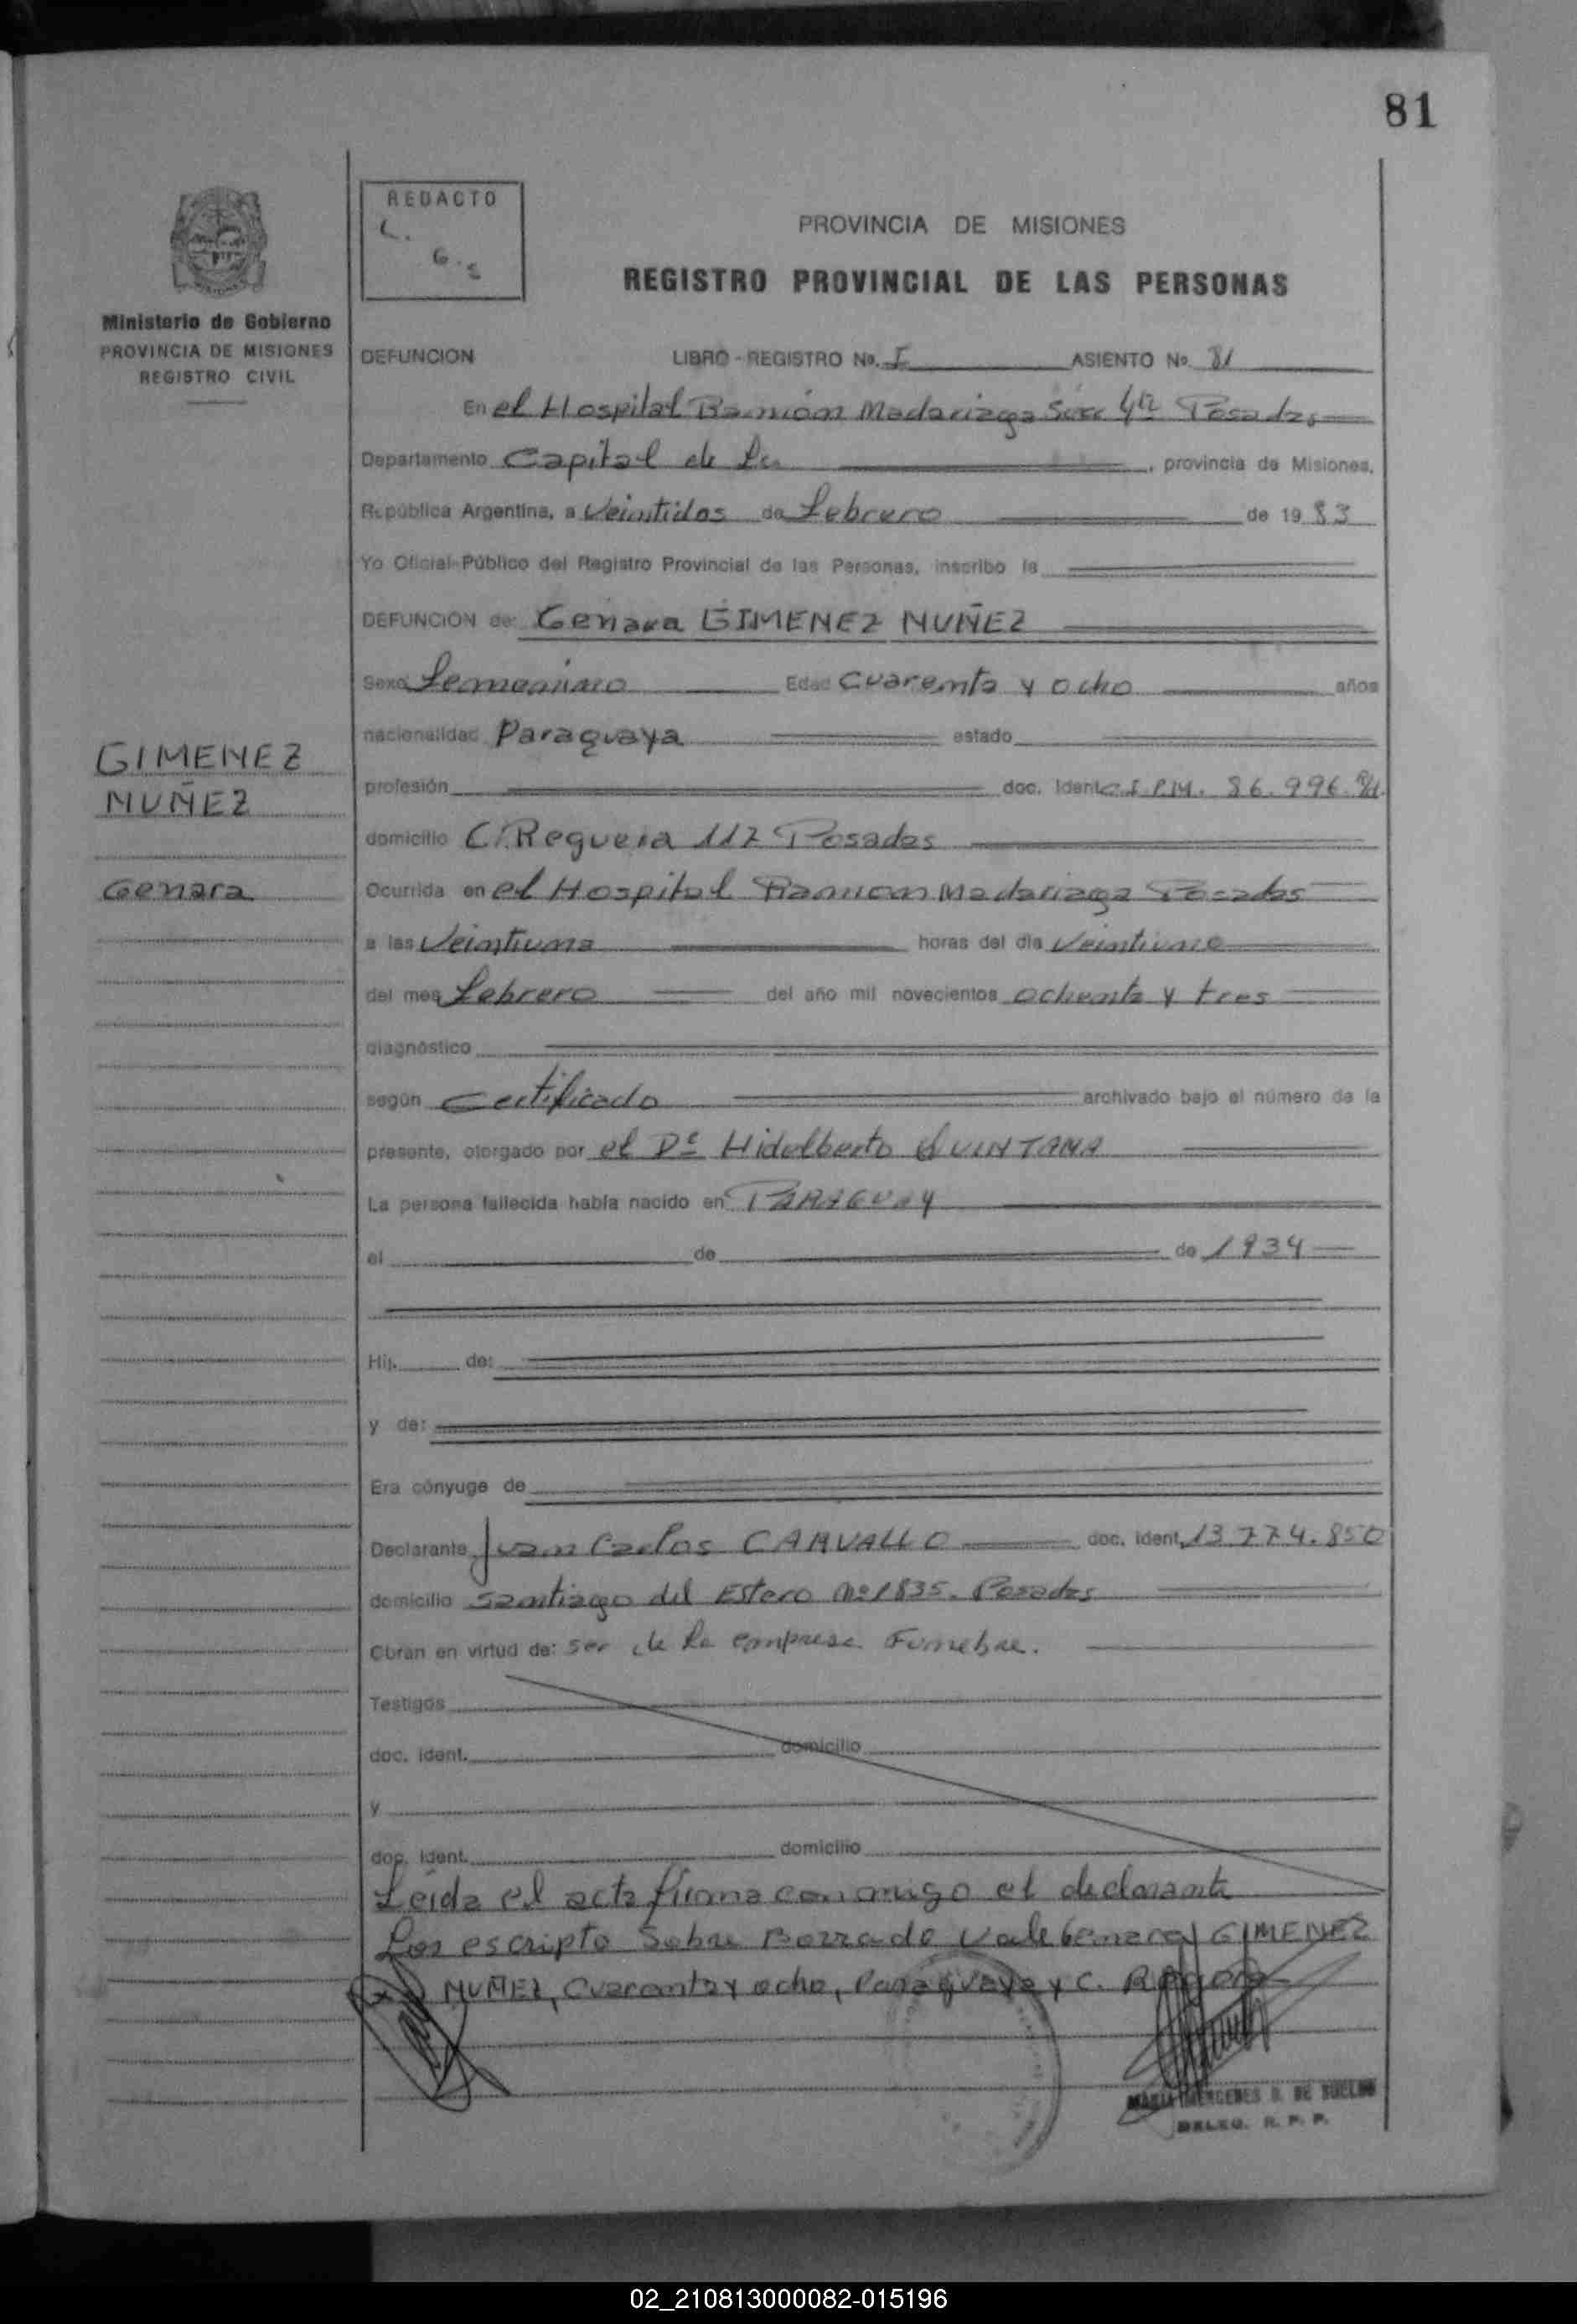 81
REDACTO
L.
G.S
PROVINCIA DE MISIONES
REGISTRO PROVINCIAL DE LAS PERSONAS
Ministerio de Gobierno
PROVINCIA DE MISIONES
REGISTRO CIVIL
DEFUNCION LIBRO - REGISTRO No. I ASIENTO No. 81
En el Hospital Ramón Madariaga Secc 4ta Posadas
Departamento Capital de La , provincia de Misiones,
República Argentina, a Veintidos de Febrero de 1983
Yo Oficial Público del Registro Provincial de las Personas, inscribo la
DEFUNCION de: Genara GIMENEZ NUÑEZ
Sexo Femenino Edad Cuarenta y ocho años
nacionalidad Paraguaya estado
GIMENEZ
NUÑEZ
Genara
profesión doc. Ident C.I.P.M. 86.996
domicilio C/Reguera 117 Posadas
Ocurrida en el Hospital Ramon Madariaga Posadas
a las Veintiuna horas del día Veintiuno
del mes Febrero del año mil novecientos ochenta y tres
diagnóstico
según Certificado archivado bajo el número de la
presente, otorgado por el Dr Hidelberto QUINTANA
La persona fallecida había nacido en PARAGUAY
el de de 1934
Hij de:
y de:
Era cónyuge de
Declarante Juan Carlos CARVALLO doc. ident. 13.774.850
domicilio Santiago del Estero Nº1835. Posadas
Obran en virtud de: ser de la empresa Funebre.
Testigos
doc. ident. domicilio
y
doc. ident. domicilio
Leida el acta firma conmigo el declarante
Los escripto Sobre Borrado Vale Genara GIMENEZ
NUÑEZ, Cuarenta y ocho, Paraguaya y C.
DE SUELDO
DELEG. R. P. P.
02_210813000082-015196